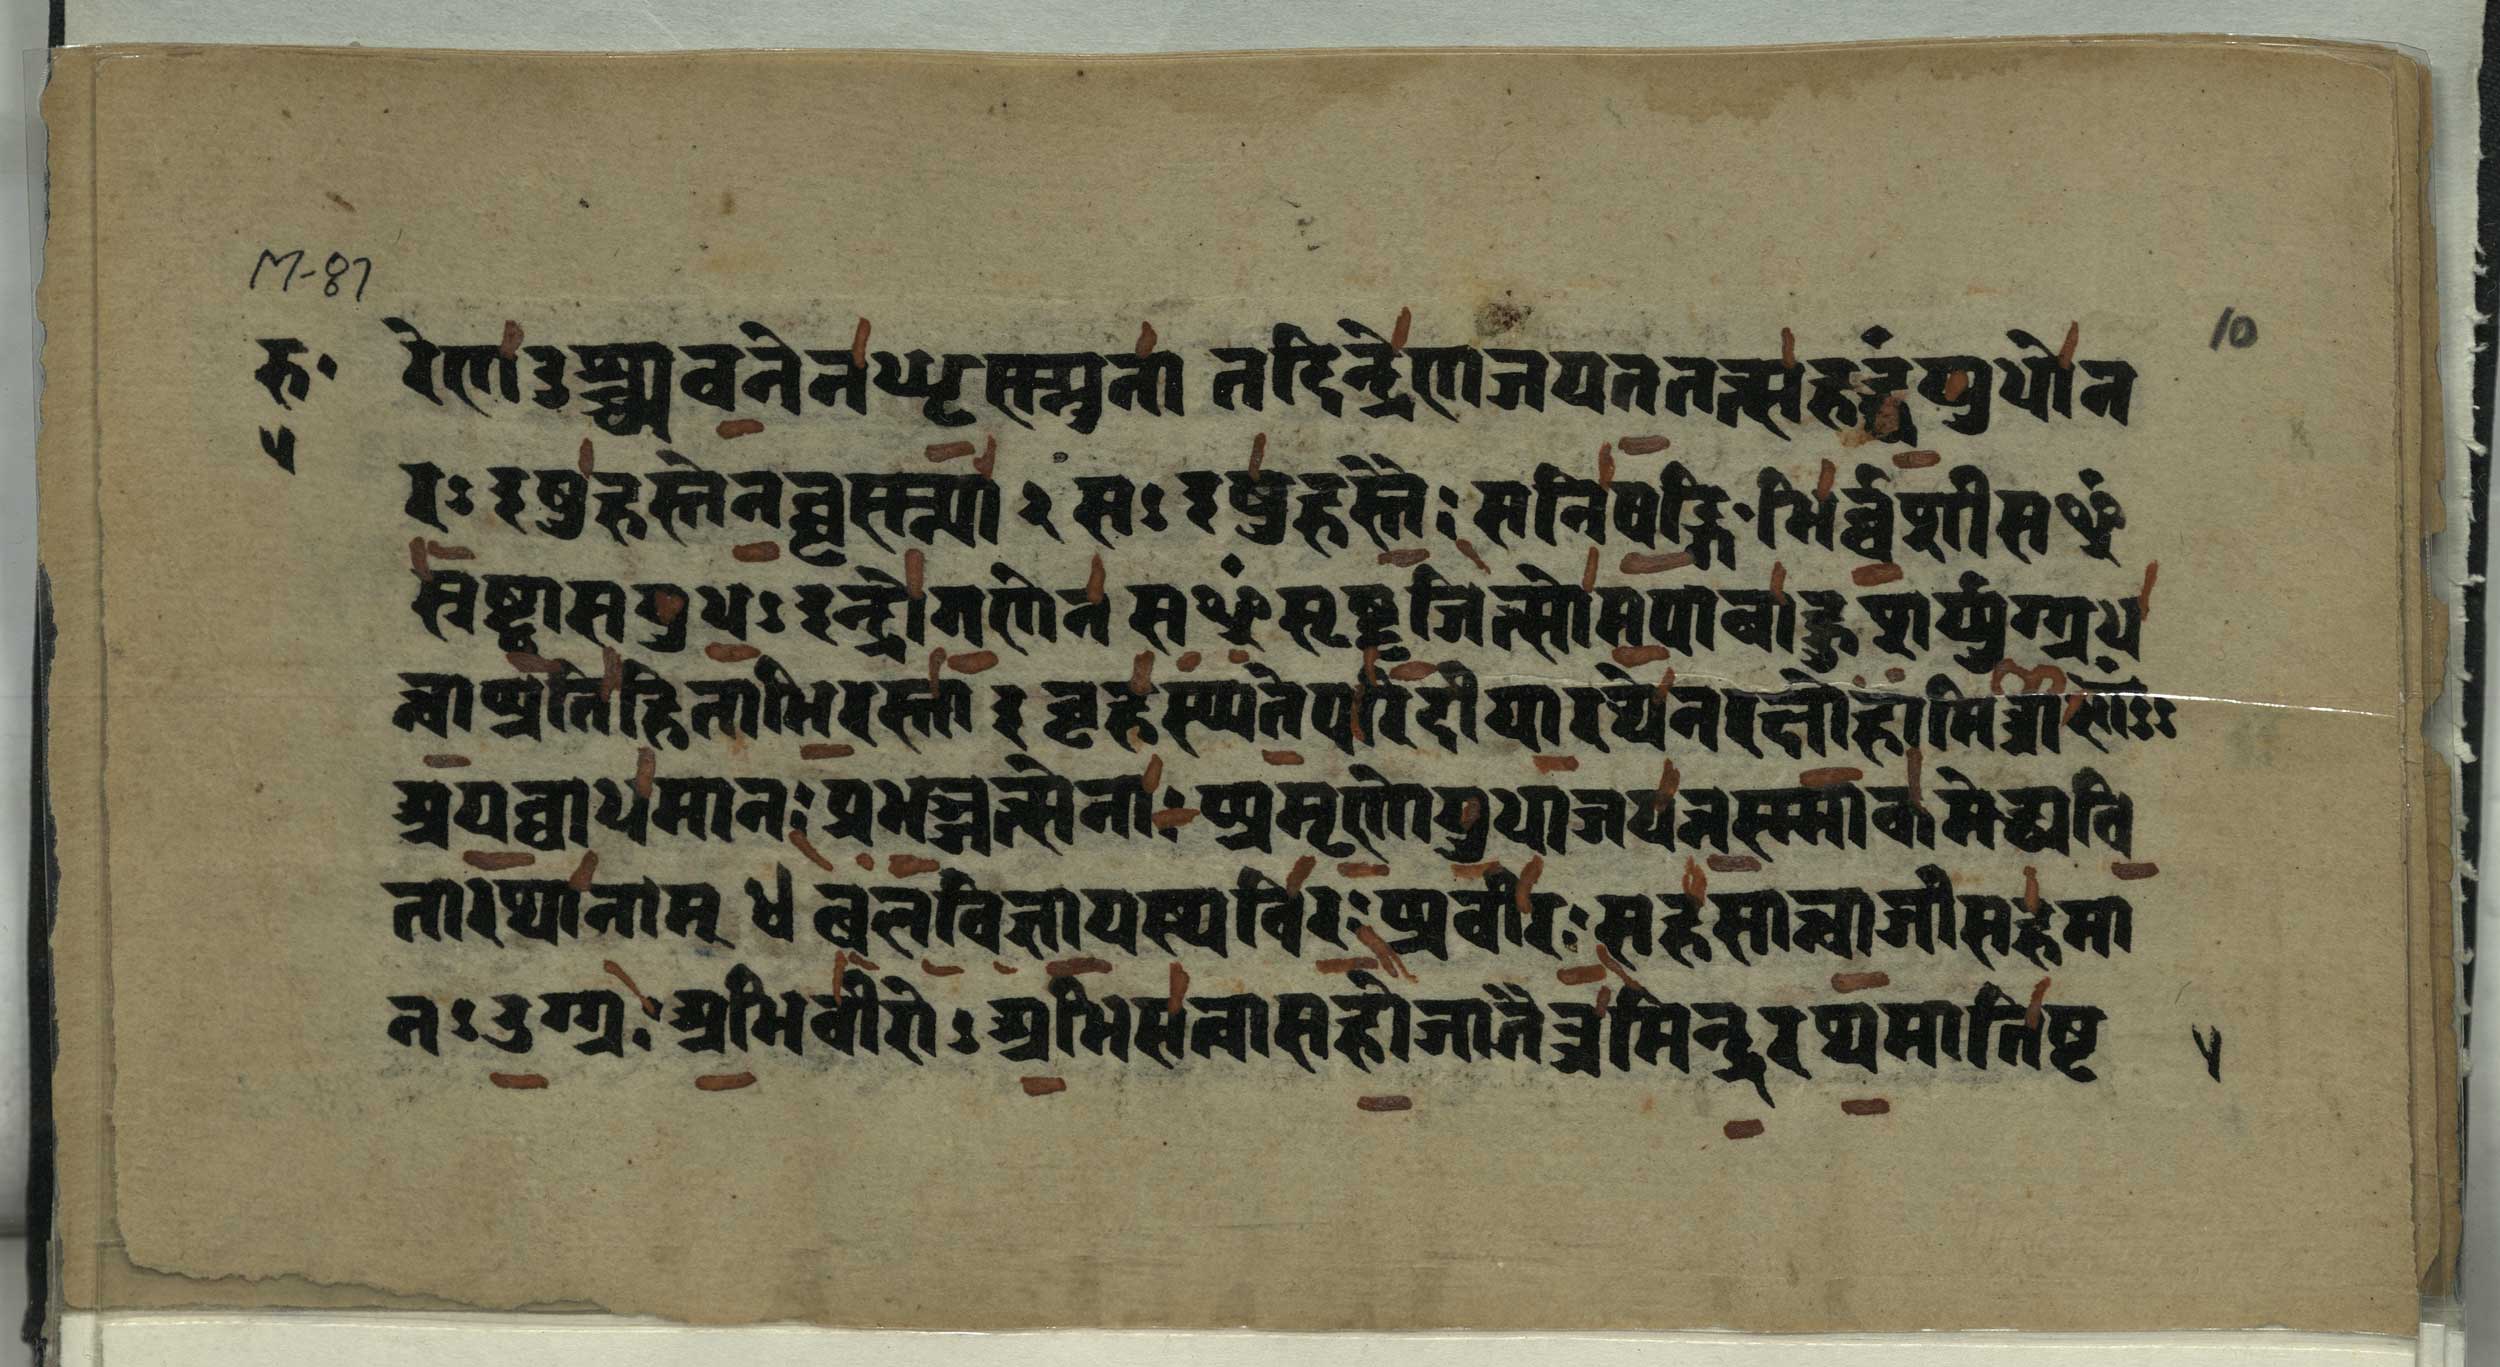 M-87
10
रु॰
५
रेणदुश्च्यवनेनधृष्णुना तदिन्द्रेणजयततत्सहद्ध्वंयुधोन
रऽइषुहस्तेनवृष्ण्णा २ सऽइषुहस्तैः सनिषङ्गिभिर्व्वशीसᳪ
स्रष्टासयुधऽइन्द्रोगणेन सᳪसृष्टजित्सोमपाबाहुशर्ध्युग्ग्रध
न्वाप्प्रतिहिताभिरस्ता ३ बृहस्प्पतेपरिदीयारथेनरक्षोहामित्राँ२ऽऽ
अपबाधमानः प्रभञ्जन्त्सेनाः प्प्रमृणोयुधाजयन्नस्म्माकमेद्ध्यवि
तारथानाम् ४ बलविज्ञायस्थविरः प्प्रवीरः सहस्वान्वाजीसहमा
नऽउग्ग्रः अभिवीरोऽअभिसत्वासहोजाजैत्रमिन्द्ररथमातिष्ट
५